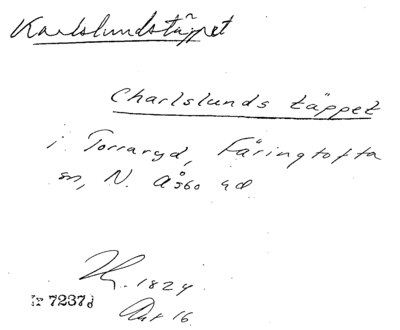 Karlslundstäppet
Charlslunds täppet
i Torraryd, Färingtofta
sn, N. Åsbo hd
1824
7237d Akt 16